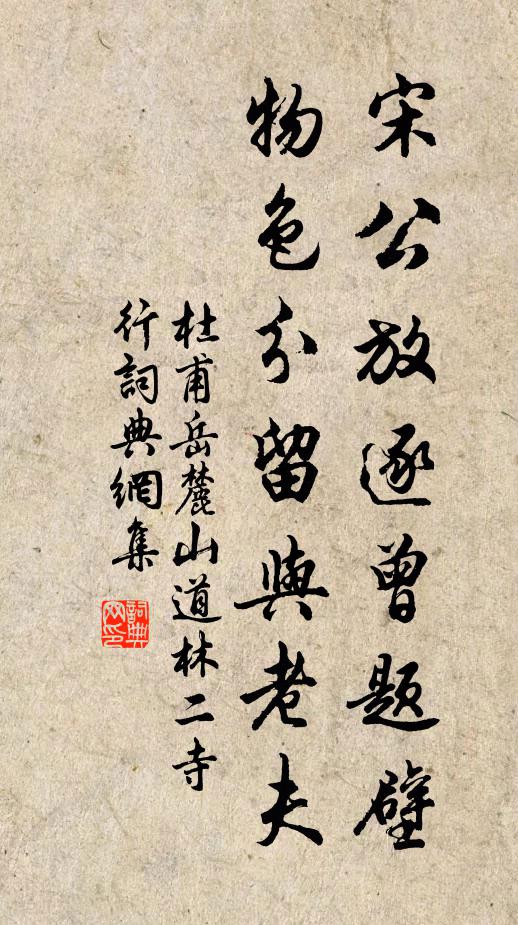 宋公放逐曾題壁
物色分留與老夫
杜甫岳麓山道林二寺
行詞典網集
詞典
网印